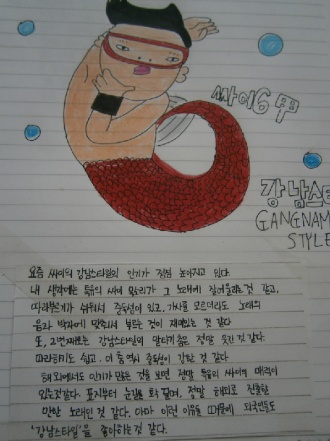 싸이6甲
강남스타
GANGNAM
STYLE
요즘 싸이의 강남스타일의 인기가 점점 높아지고 있다.
내 생각에는 특유의 싸이 목소리가 그 노래에 잘 어울리는 것 같고,
따라부르기가 쉬워서 중독성이 있고, 가사를 모르더라도 노래의
음과 박자에 맞춰서 부를 것이 재미있는 것 같다
또, 2번째로는 강남스타일의 말타기춤은 정말 웃긴 것 같다.
따라하기도 쉽고, 이 춤 역시 중독성이 강한 것 같다
해외에서도 인기가 많은 것을 보면 정말 특유의 싸이의 매력이
있는것같다. 표지부터 눈길을 확 끌며, 정말 해외로 진출할
만한 노래인 것 같다. 아마 이런 이유들 때문에 외국인들도
'강남스타일'을 좋아하는것 같다.